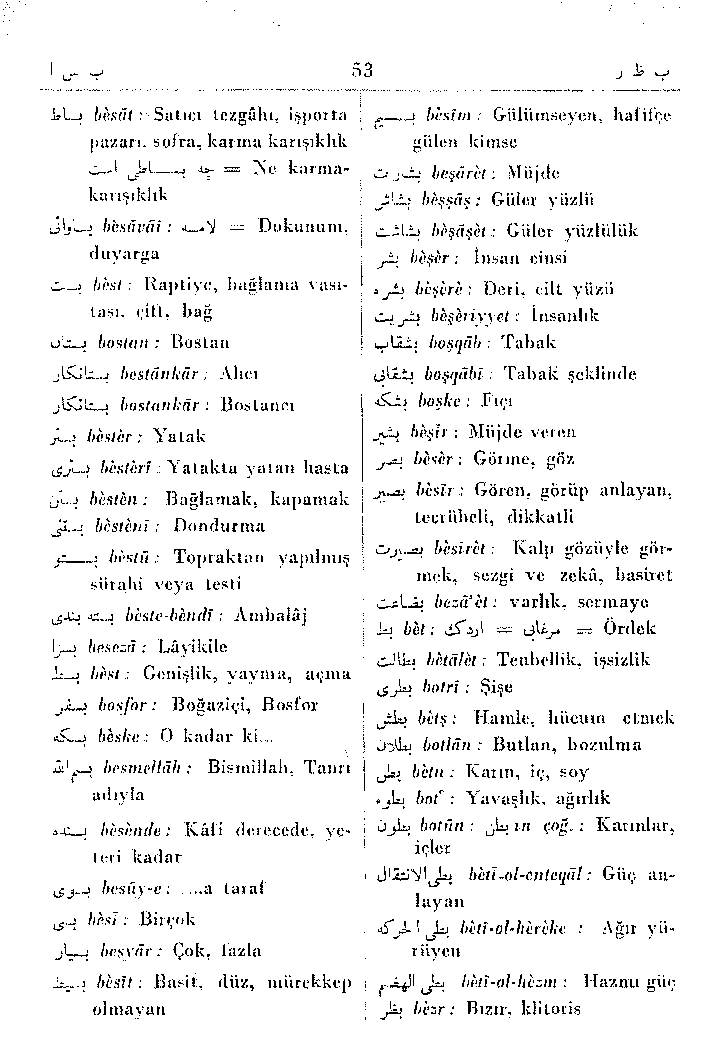 ب س ا 53 ب ظ ر
بساط bèsāt : Satıcı tezgâhı, işporta
pazarı, sofra, karma karışıklık
چه بساطی است = Ne karma-
karışıklık
بساوائی bèsāvāi : لامسه = Dokunum,
duyarga
بست bèst : Raptiye, bağlama vası-
tası, çift, bağ
بستان bostan : Bostan
بستانکار bestānkār : Alıcı
بستانکار bostankār : Bostancı
بستر bèstèr : Yatak
بستری bèstèrī : Yatakta yatan hasta
بستن bèstèn : Bağlamak, kapamak
بستنی bèstènī : Dondurma
بستو bèstū : Topraktan yapılmış
sürahi veya testi
بسته بندی bèste-bèndī : Ambalâj
بسزا besezā : Lâyikile
بسط bèst : Genişlik, yayma, açma
بسفر bosfor : Boğaziçi, Bosfor
بسکه bèske : O kadar ki...
بسم الله besmellāh : Bismillah, Tanrı
adıyla
بسنده bèsènde : Kâfi derecede, ye-
teri kadar
بسوی besūy-e : ....a taraf
بسی bèsī : Birçok
بسیار beşyār : Çok, fazla
بسیط bèsīt : Basit, düz, mürekkep
olmayan
بسیم bèsīm : Gülümseyen, hafifçe
gülen kimse
بشارت beşārèt : Müjde
بشاش bèşşāş : Güler yüzlü
بشاشت bèşāşèt : Güler yüzlülük
بشر bèşèr : İnsan cinsi
بشره bèşèrè : Deri, cilt yüzü
بشریت bèşèriyyet : İnsanlık
بشقاب boşqāb : Tabak
بشقابی boşqābī : Tabak şeklinde
بشکه boşke : Fıçı
بشیر bèşīr : Müjde veren
بصر bèsèr : Görme, göz
بصیر bèsīr : Gören, görüp anlayan,
tecrübeli, dikkatli
بصیرت bèsirèt : Kalp gözüyle gör-
mek, sezgi ve zekâ, basiret
بضاعت bezā'èt : varlık, sermaye
بط bèt : مرغابی = اردک = Ördek
بطالت bètālèt : Tenbellik, işsizlik
بطری botrī : Şişe
بطش bètş : Hamle, hücum etmek
بطلان botlān : Butlan, bozulma
بطن bètn : Karın, iç, soy
بطوء bot' : Yavaşlık, ağırlık
بطون botūn : بطن ın çoğ. : Karınlar,
içler
بطی الانتقال bètī-ol-enteqāl : Güç an-
layan
بطی الحرکه bètī-ol-hèrèke : Ağır yü-
rüyen
بطی الهضم bètī-ol-hèzm : Hazmı güç
بظر bèzr : Bızır, klitoris